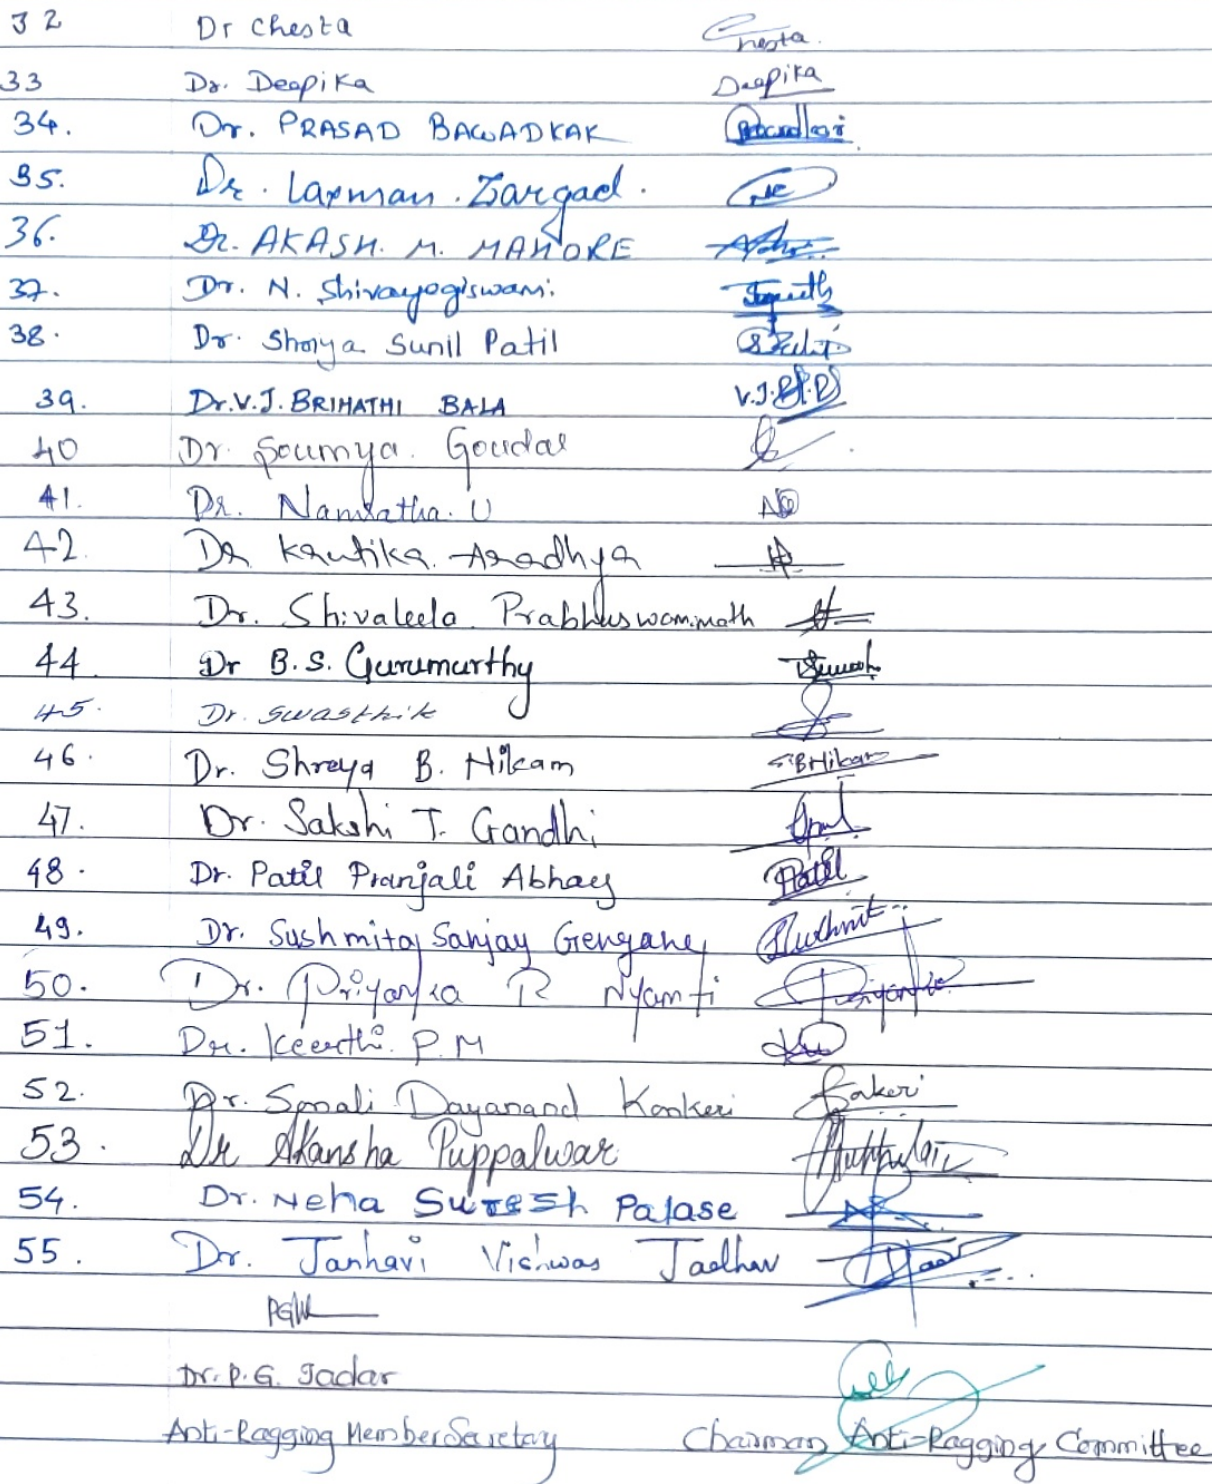 32 Dr Chesta Chesta.
33 Dr. Deepika Deepika
34. Dr. PRASAD BAWADKAR
35. Dr. Laxman. Zargad.
36. Dr. AKASH. M. MANORE
37. Dr. N. Shivayogiswami.
38. Dr. Shorya Sunil Patil
39. Dr. V.J. BRIHATHI BALA V.J.
40 Dr. Soumya. Goudar
41. Dr. Namratha. U
42. Dr Krutika. Aradhya
43. Dr. Shivaleela Prabhuswamimath
44. Dr B.S. Gurumurthy
45. Dr. Swasthik
46. Dr. Shreya B. Nikam SBNikam
47. Dr. Sakshi T. Gandhi
48. Dr. Patil Pranjali Abhay Patil
49. Dr. Sushmita Sanjay Gengane
50. Dr. Priyanka R Nyamti Priyanka
51. Dr. Keerthi. P.M
52. Dr. Sonali Dayanand Kankeri
53. Dr Akansha Puppalwar
54. Dr. Neha Suresh Palase
55. Dr. Janhavi Vishwas Jadhav
Dr. P. G. Jadar
Anti-Ragging Member Secretary Chairman Anti-Ragging Committee